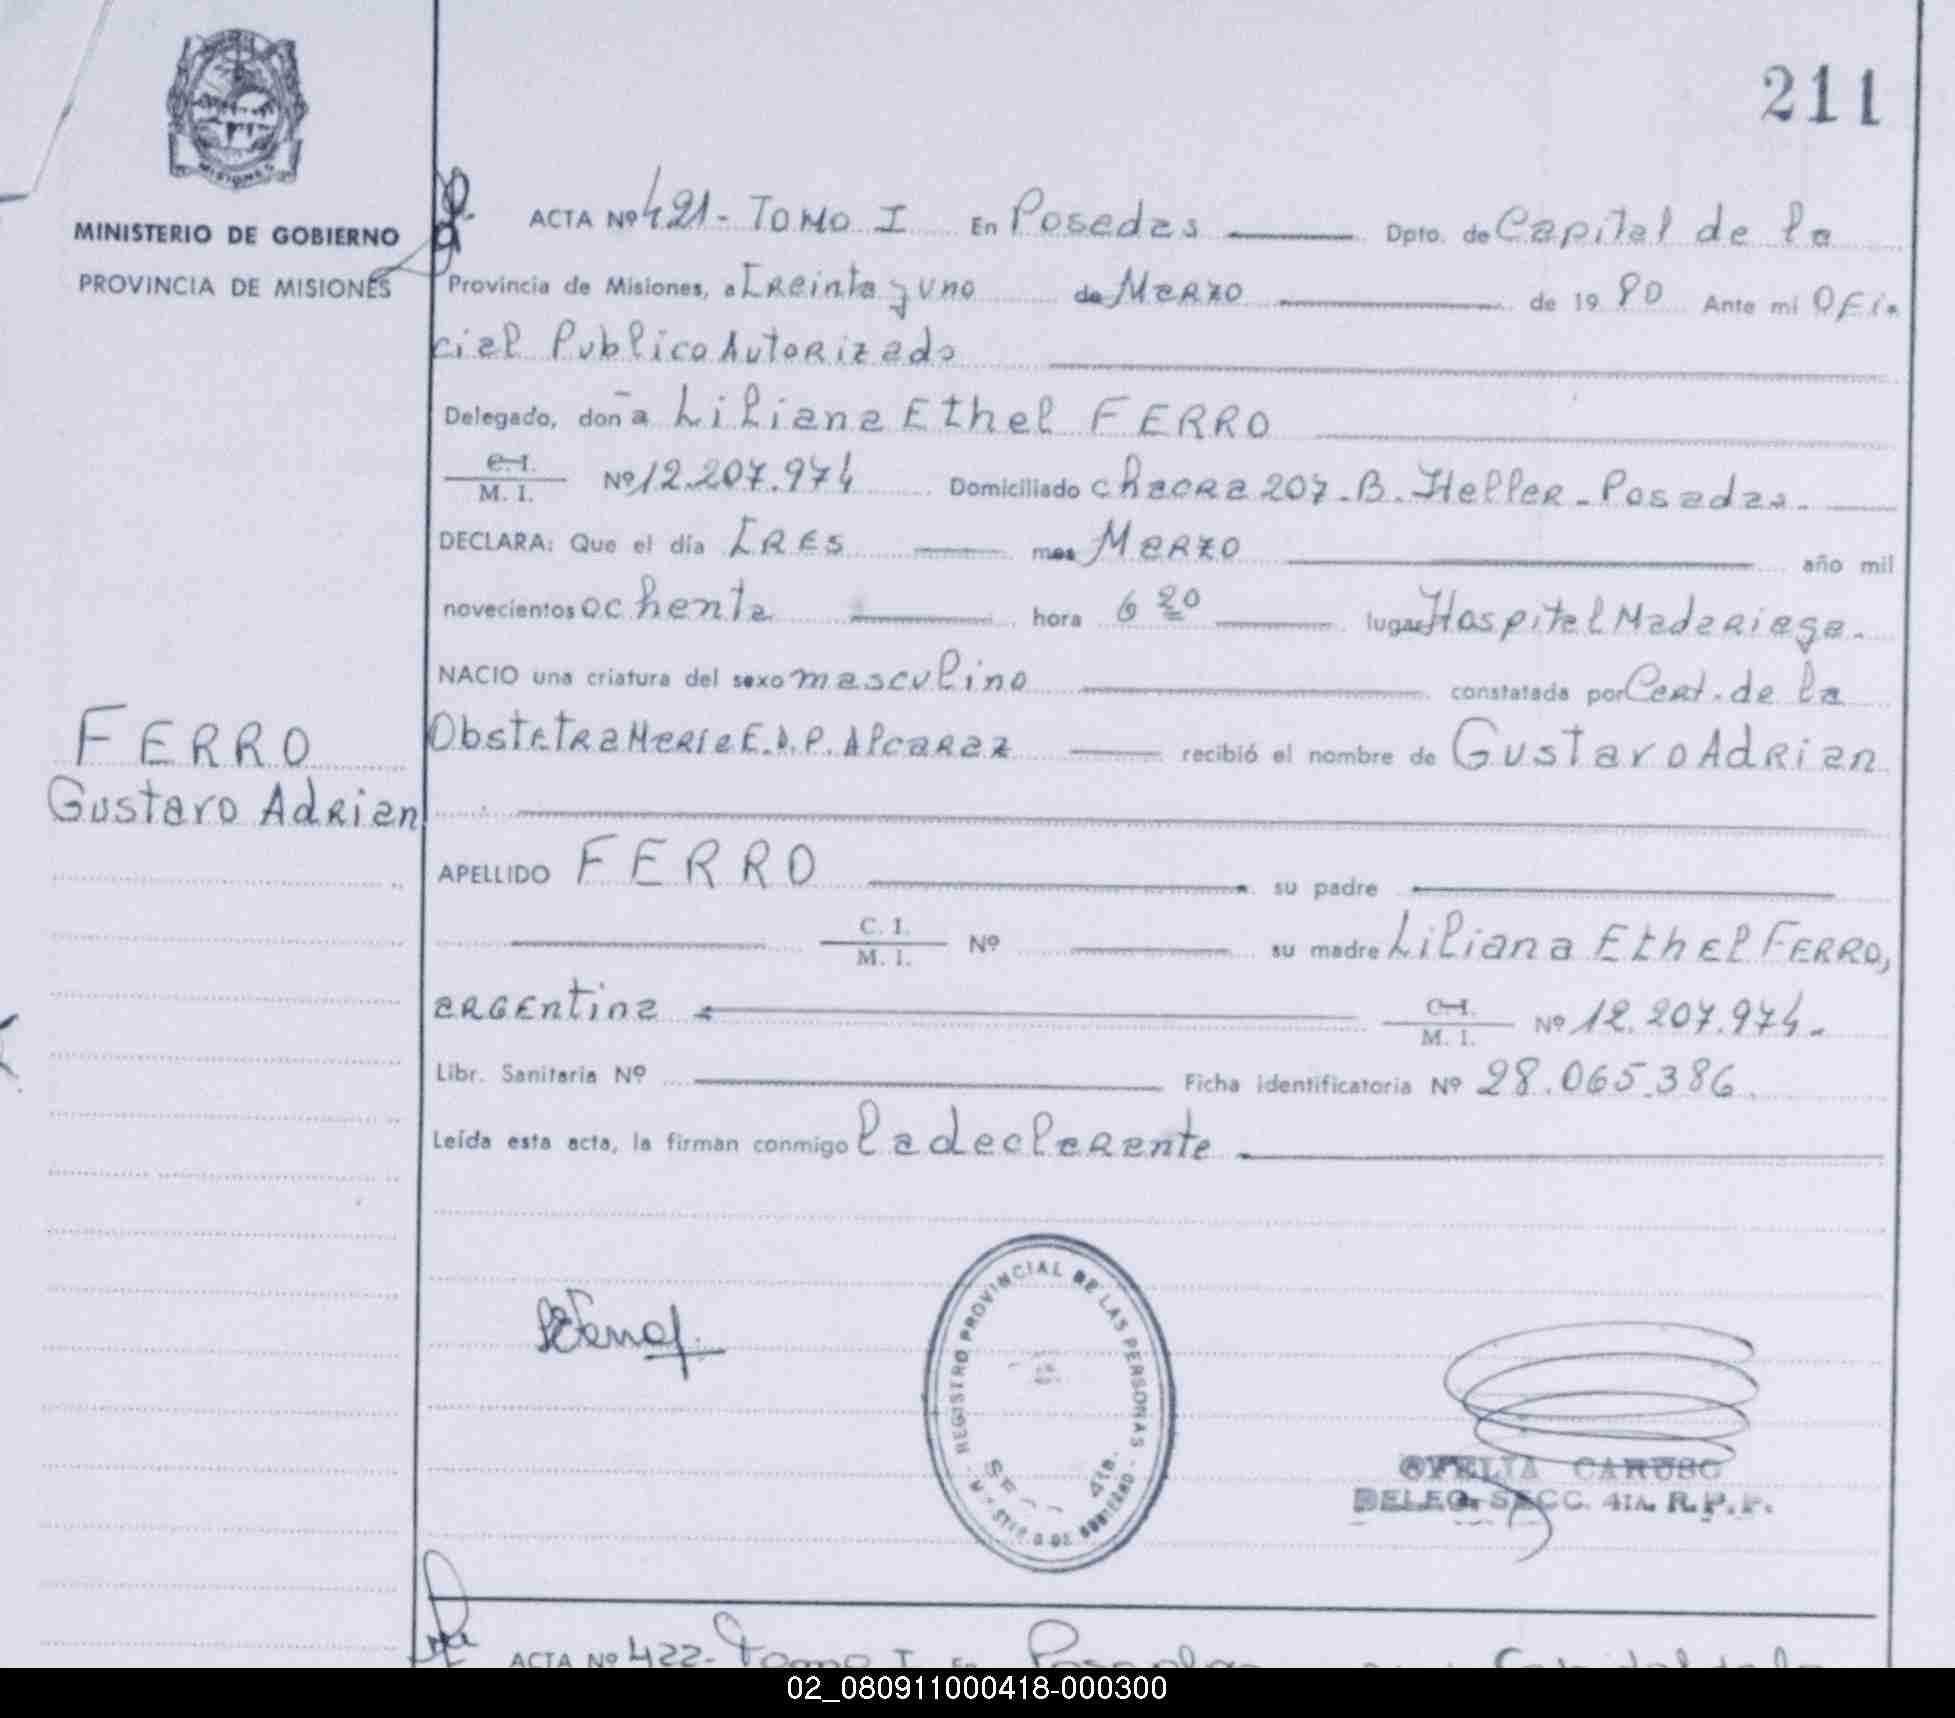 211
MISIONES
MINISTERIO DE GOBIERNO
PROVINCIA DE MISIONES
ACTA Nº 421 - TOMO I En Posadas Dpto. de Capital de la
Provincia de Misiones, a Treinta y uno de Marzo de 19 80 Ante mi Ofi-
cial Publico Autorizado
Delegado, doña Liliana Ethel FERRO
C.I.
M. I. Nº 12.207.974 Domiciliado chacra 207 - B. Heller - Posadas.
DECLARA: Que el día TRES mes Marzo año mil
novecientos ochenta hora 6 20 lugar Hospital Madariaga.
NACIO una criatura del sexo masculino constatada por Cert. de la
Obstetra Maria E. D. P. Alcaraz recibió el nombre de Gustavo Adrian
FERRO
Gustavo Adrian
APELLIDO FERRO su padre
C. I.
M. I. Nº su madre Liliana Ethel FERRO,
argentina C.I.
M. I. Nº 12.207.974.
Libr. Sanitaria Nº Ficha identificatoria Nº 28.065.386.
Leída esta acta, la firman conmigo la declarante
REGISTRO PROVINCIAL DE LAS PERSONAS
4ta.
OFELIA CARUSO
DELEG. SECC. 4TA. R.P.P.
ACTA Nº 422 - Tomo I En Posadas Capital de la
02_080911000418-000300